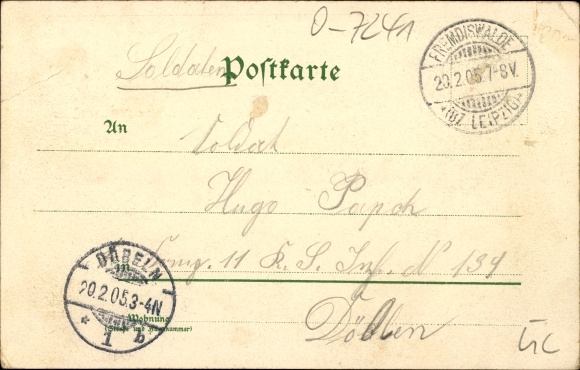 O-7241
FREMDISWALDE
20.2.05.7-8V.
(BZ. LEIPZIG)
Soldaten Postkarte
An Soldat
Hugo
Comp. 11 K. S. Inf. N 139
DÖBELN
20.2.05.3-4N
* 1 b
Wohnung
(Straße und Hausnummer)
Döbeln